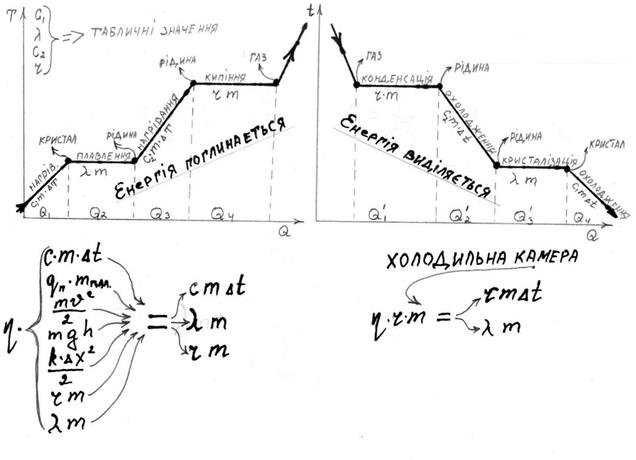 T
C₁
λ
C₂
r
=> ТАБЛИЧНІ ЗНАЧЕННЯ
НАГРІВ
C₁m·ΔT
КРИСТАЛ
ПЛАВЛЕННЯ
λ m
РІДИНА
НАГРІВАННЯ
C₂m·ΔT
РІДИНА
КИПІННЯ
r m
ГАЗ
Енергія поглинається
Q₁ Q₂ Q₃ Q₄ Q
t
ГАЗ
КОНДЕНСАЦІЯ
r·m
РІДИНА
ОХОЛОДЖЕННЯ
C₂m·Δt
РІДИНА
КРИСТАЛІЗАЦІЯ
λ m
КРИСТАЛ
ОХОЛОДЖЕННЯ
C₁mΔt
Енергія виділяється
Q₁' Q₂' Q₃' Q₄ Q
η·
c·m·Δt
qₙ·mпал.
mv²/2
mgh
k·Δx²/2
r m
λ m
=
c m Δt
λ m
r m
ХОЛОДИЛЬНА КАМЕРА
η·r·m =
r m Δt
λ m